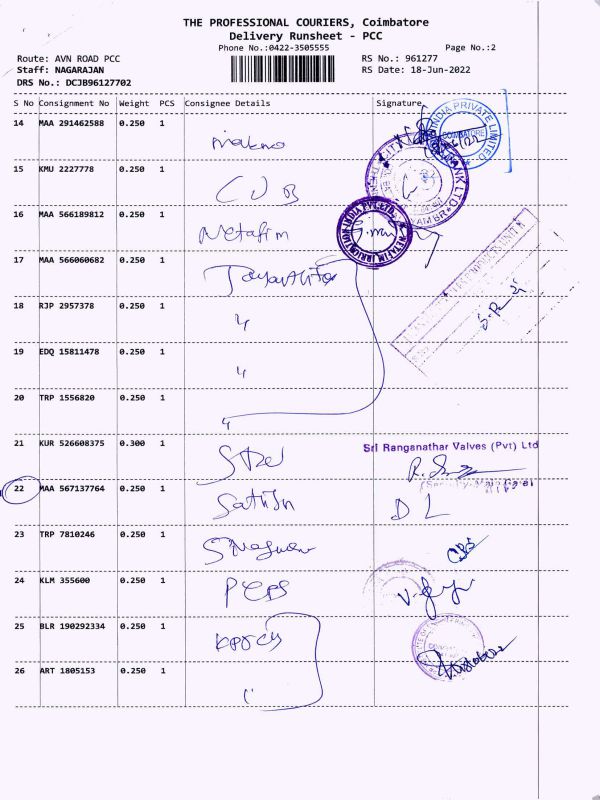 THE PROFESSIONAL COURIERS, Coimbatore
Delivery Runsheet - PCC
Phone No.:0422-3505555
Page No.:2
Route: AVN ROAD PCC
RS No.: 961277
Staff: NAGARAJAN
RS Date: 18-Jun-2022
DRS No.: DCJB96127702
S No Consignment No Weight PCS Consignee Details Signature
14 MAA 291462588 0.250 1
15 KMU 2227778 0.250 1 CUB
16 MAA 566189812 0.250 1 Netafim
17 MAA 566060682 0.250 1
18 RJP 2957378 0.250 1 "
19 EDQ 15811478 0.250 1 "
20 TRP 1556820 0.250 1 "
21 KUR 526608375 0.300 1
Sri Ranganathar Valves (Pvt) Ltd
22 MAA 567137764 0.250 1 DL
23 TRP 7810246 0.250 1
24 KLM 355600 0.250 1 PEPS
25 BLR 190292334 0.250 1
26 ART 1805153 0.250 1 "
INDIA PRIVATE LIMITED
COIMBATORE
BANK LTD
NETAFIM IRRIGATION INDIA PVT. LTD.